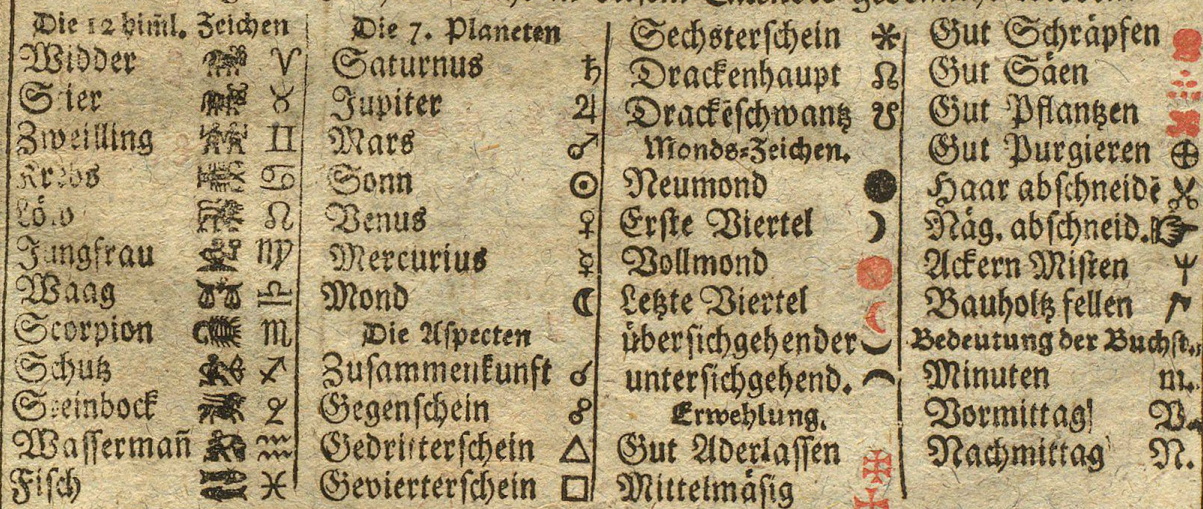 Die 12 him̃l. Zeichen
Widder ♈
Stier ♉
Zweilling ♊
Krebs ♋
Löw ♌
Jungfrau ♍
Waag ♎
Scorpion ♏
Schutz ♐
Steinbock ♑
Wassermañ ♒
Fisch ♓
Die 7. Planeten
Saturnus ♄
Jupiter ♃
Mars ♂
Sonn ☉
Venus ♀
Mercurius ☿
Mond ☾
Die Aspecten
Zusammenkunft ☌
Gegenschein ☍
Gedritterschein △
Gevierterschein □
Sechsterschein ⚹
Drackenhaupt ☊
Drackēschwantz ☋
Monds-Zeichen.
Neumond ●
Erste Viertel ☽
Vollmond
Letzte Viertel ☾
übersichgehender
untersichgehend.
Erwehlung.
Gut Aderlassen
Mittelmäsig
Gut Schräpfen
Gut Säen
Gut Pflantzen
Gut Purgieren ⊕
Haar abschneidē
Näg. abschneid.
Ackern Misten
Bauholtz fellen
Bedeutung der Buchst.
Minuten m.
Vormittag V.
Nachmittag N.